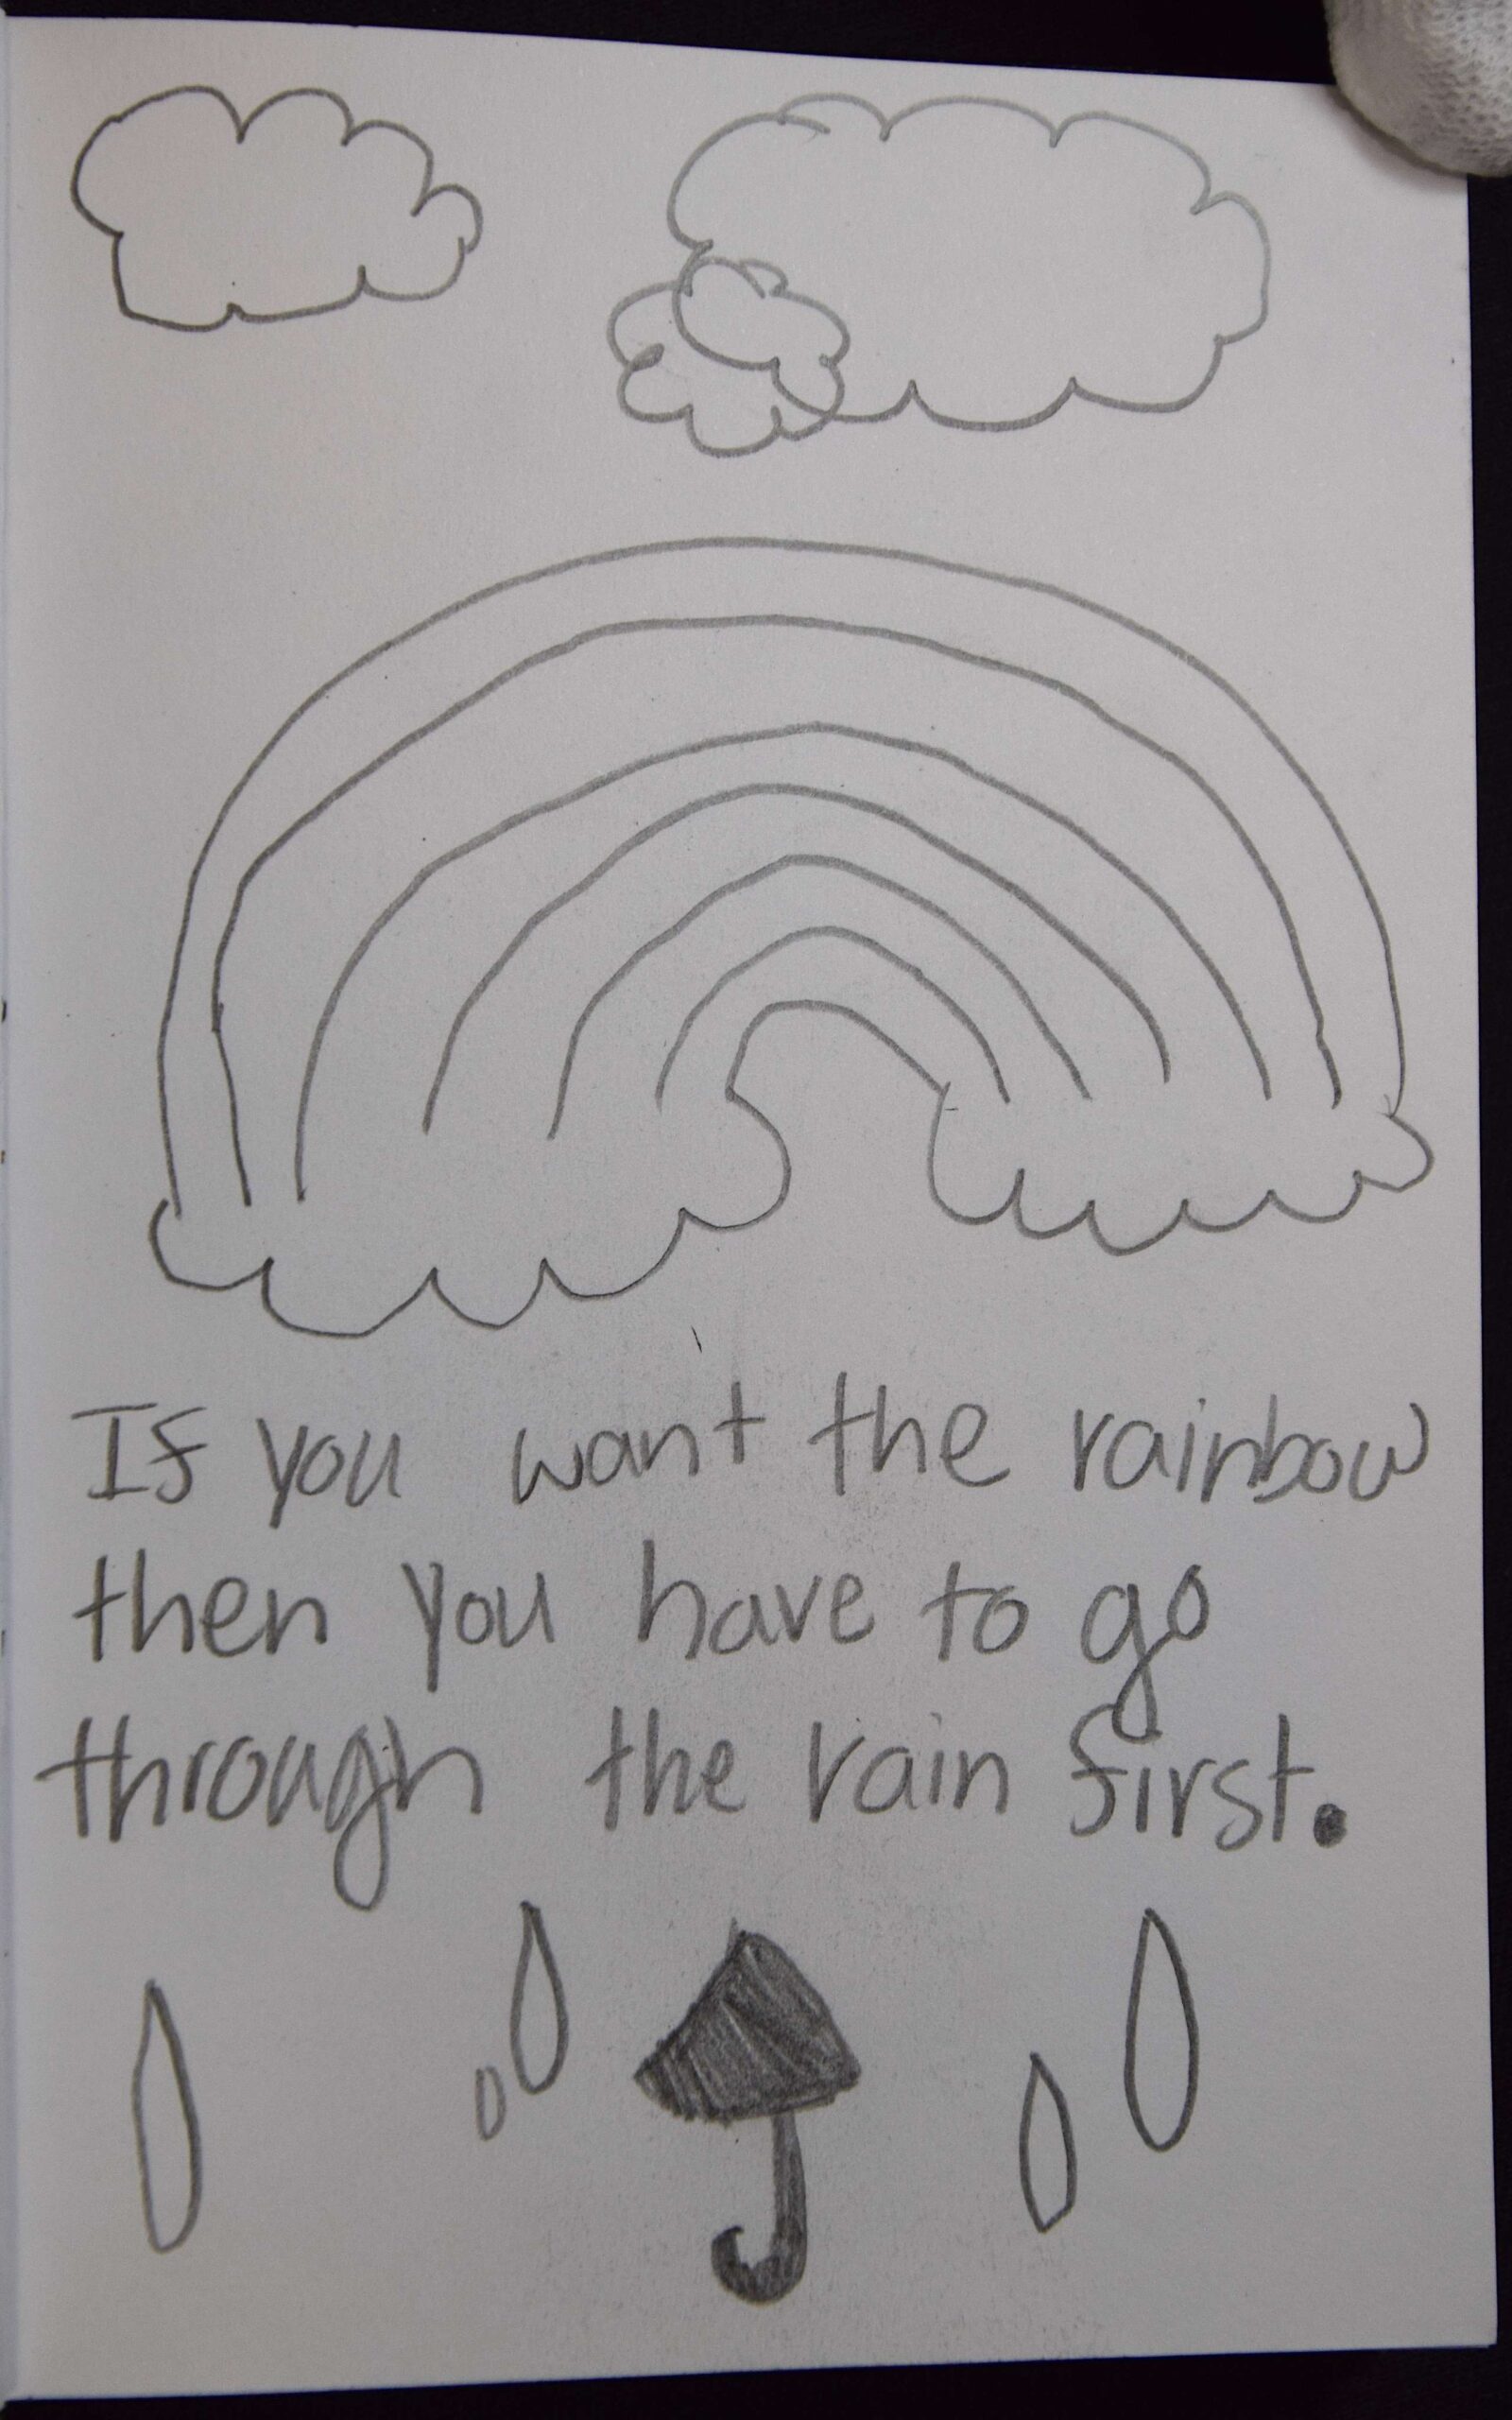 If you want the rainbow
then you have to go
through the rain first.